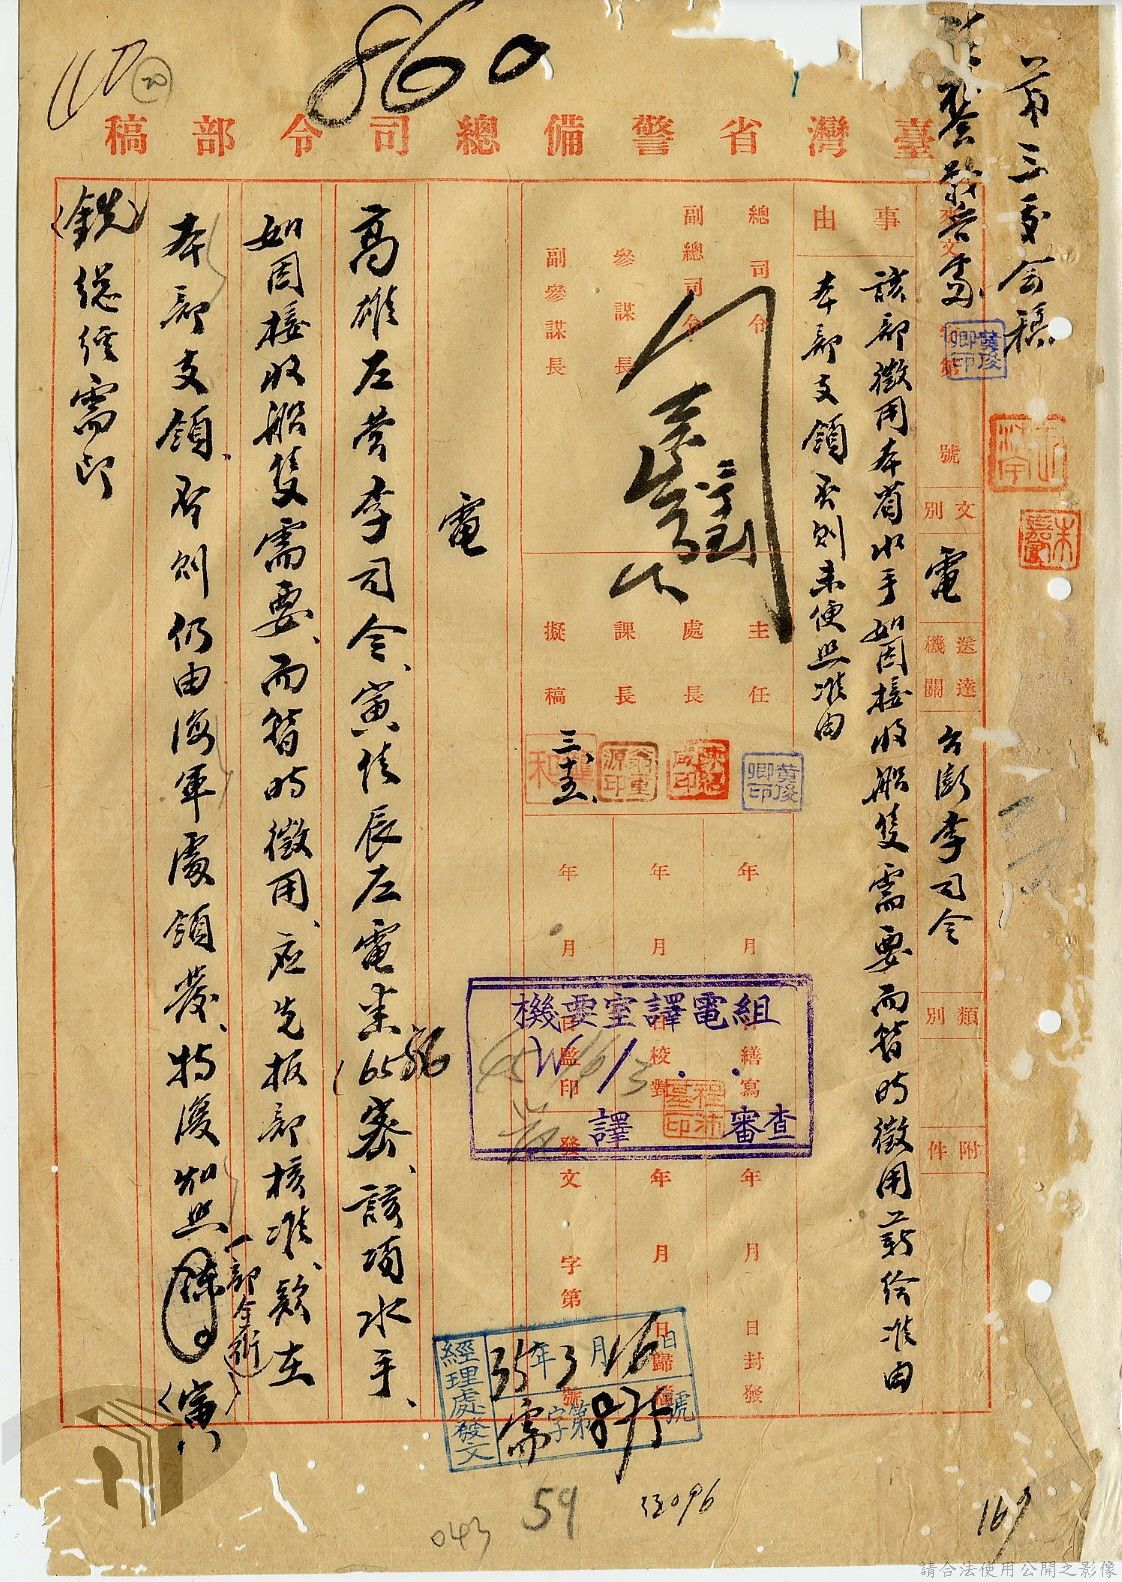 860
70
臺灣省警備總司令部稿
第三處會稿
來文 字第 號
黃俊卿印
文別 電
送達機關 台澎李司令
類別
附件
事由
該部徵用本省水手如因接收船隻需要而暫時徵用薪給准由
本部支領否則未便照准由
總司令
副總司令
參謀長
副參謀長
主任
處長
課長
擬稿
黃俊卿印
三、十五、
年 月 日封發
年 月 日歸檔
年 月 日繕寫
校對
監印
發文 字第 號
機要室譯電組
譯
審查
程沛基印
經理處發文
35年3月16日
需字第875號
電
高雄左營李司令、寅佳辰左電悉(6556密、該項水手、
如因接收船隻需要、而暫時徵用、應先報部核准、款在
本部支領、否則仍由海軍處領發、特復知照 (寅
一部令衔)
銑)總經需印
59
043
169
請合法使用公開之影像